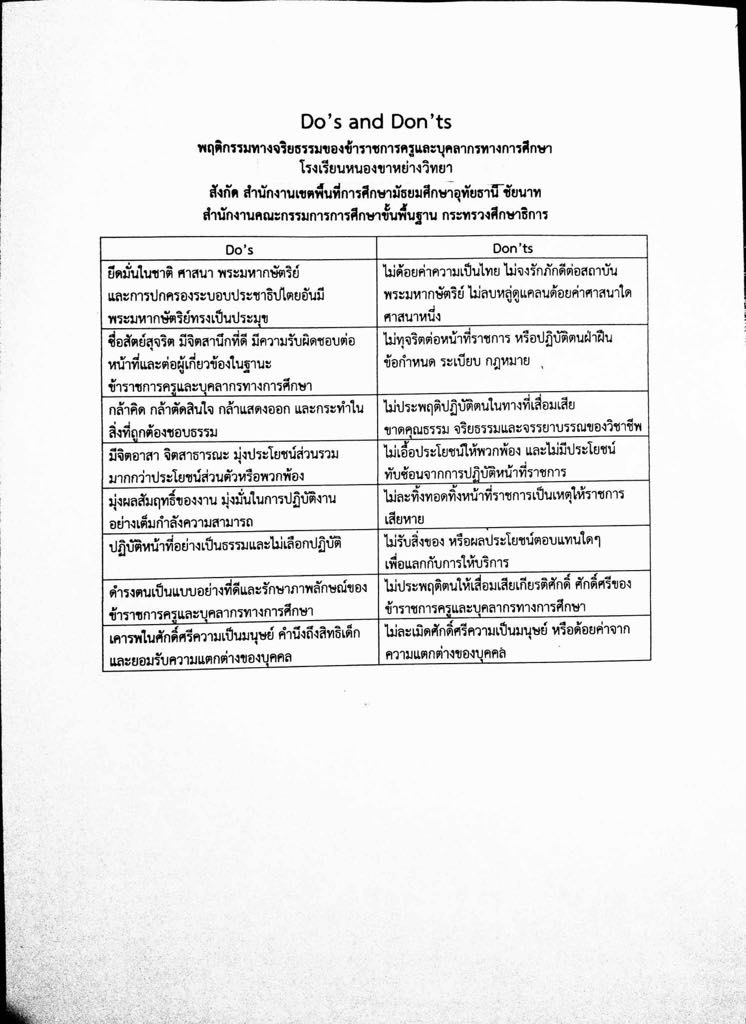 Do's and Don'ts
พฤติกรรมทางจริยธรรมของข้าราชการครูและบุคลากรทางการศึกษา
โรงเรียนหนองขาหย่างวิทยา
สังกัด สำนักงานเขตพื้นที่การศึกษามัธยมศึกษาอุทัยธานี ชัยนาท
สำนักงานคณะกรรมการการศึกษาขั้นพื้นฐาน กระทรวงศึกษาธิการ
Do's
Don'ts
ยึดมั่นในชาติ ศาสนา พระมหากษัตริย์
และการปกครองระบอบประชาธิปไตยอันมี
พระมหากษัตริย์ทรงเป็นประมุข
ไม่ด้อยค่าความเป็นไทย ไม่จงรักภักดีต่อสถาบัน
พระมหากษัตริย์ ไม่ลบหลู่ดูแคลนด้อยค่าศาสนาใด
ศาสนาหนึ่ง
ซื่อสัตย์สุจริต มีจิตสานึกที่ดี มีความรับผิดชอบต่อ
หน้าที่และต่อผู้เกี่ยวข้องในฐานะ
ข้าราชการครูและบุคลากรทางการศึกษา
ไม่ทุจริตต่อหน้าที่ราชการ หรือปฏิบัติตนฝ่าฝืน
ข้อกำหนด ระเบียบ กฎหมาย
กล้าคิด กล้าตัดสินใจ กล้าแสดงออก และกระทำใน
สิ่งที่ถูกต้องชอบธรรม
ไม่ประพฤติปฏิบัติตนในทางที่เสื่อมเสีย
ขาดคุณธรรม จริยธรรมและจรรยาบรรณของวิชาชีพ
มีจิตอาสา จิตสาธารณะ มุ่งประโยชน์ส่วนรวม
มากกว่าประโยชน์ส่วนตัวหรือพวกพ้อง
ไม่เอื้อประโยชน์ให้พวกพ้อง และไม่มีประโยชน์
ทับซ้อนจากการปฏิบัติหน้าที่ราชการ
มุ่งผลสัมฤทธิ์ของงาน มุ่งมั่นในการปฏิบัติงาน
อย่างเต็มกำลังความสามารถ
ไม่ละทิ้งทอดทิ้งหน้าที่ราชการเป็นเหตุให้ราชการ
เสียหาย
ปฏิบัติหน้าที่อย่างเป็นธรรมและไม่เลือกปฏิบัติ
ไม่รับสิ่งของ หรือผลประโยชน์ตอบแทนใดๆ
เพื่อแลกกับการให้บริการ
ดำรงตนเป็นแบบอย่างที่ดีและรักษาภาพลักษณ์ของ
ข้าราชการครูและบุคลากรทางการศึกษา
ไม่ประพฤติตนให้เสื่อมเสียเกียรติศักดิ์ ศักดิ์ศรีของ
ข้าราชการครูและบุคลากรทางการศึกษา
เคารพในศักดิ์ศรีความเป็นมนุษย์ คำนึงถึงสิทธิเด็ก
และยอมรับความแตกต่างของบุคคล
ไม่ละเมิดศักดิ์ศรีความเป็นมนุษย์ หรือด้อยค่าจาก
ความแตกต่างของบุคคล